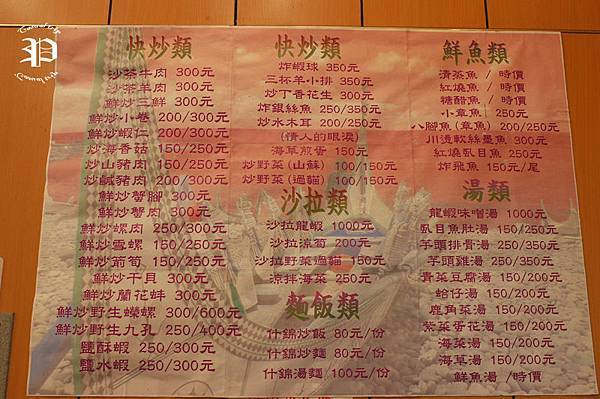 快炒類
沙茶牛肉 300元
沙茶羊肉 300元
鮮炒三鮮 300元
鮮炒小卷 200/300元
鮮炒蝦仁 200/300元
炒海香菇 150/250元
炒山豬肉 150/250元
炒鹹豬肉 200/300元
鮮炒蟹腳 300元
鮮炒蟹肉 300元
鮮炒螺肉 250/300元
鮮炒雪螺 150/250元
鮮炒箭筍 150/250元
鮮炒干貝 300元
鮮炒蘭花蚌 300元
鮮炒野生蠑螺 300/600元
鮮炒野生九孔 250/400元
鹽酥蝦 250/300元
鹽水蝦 250/300元
快炒類
炸蝦球 350元
三杯羊小排 350元
炒丁香花生 300元
炸銀絲魚 250/350元
炒水木耳 200/250元
(情人的眼淚)
海草煎蛋 150元
炒野菜(山蘇) 100/150元
炒野菜(過貓) 100/150元
沙拉類
沙拉龍蝦 1000元
沙拉涼筍 200元
沙拉野菜過貓 150元
涼拌海菜 250元
麵飯類
什錦炒飯 80元/份
什錦炒麵 80元/份
什錦湯麵 100元/份
鮮魚類
清蒸魚 / 時價
紅燒魚 / 時價
糖醋魚 / 時價
小章魚 / 250元
八腳魚(章魚) 200/250元
川燙軟絲墨魚 300元
紅燒虱目魚 250元
炸飛魚 150元/尾
湯類
龍蝦味噌湯 1000元
虱目魚肚湯 150/250元
芋頭排骨湯 250/350元
芋頭雞湯 250/350元
青菜豆腐湯 150/200元
蛤仔湯 150/200元
鹿角菜湯 150/200元
紫菜蛋花湯 150/200元
海菜湯 150/200元
海草湯 150/200元
鮮魚湯 /時價